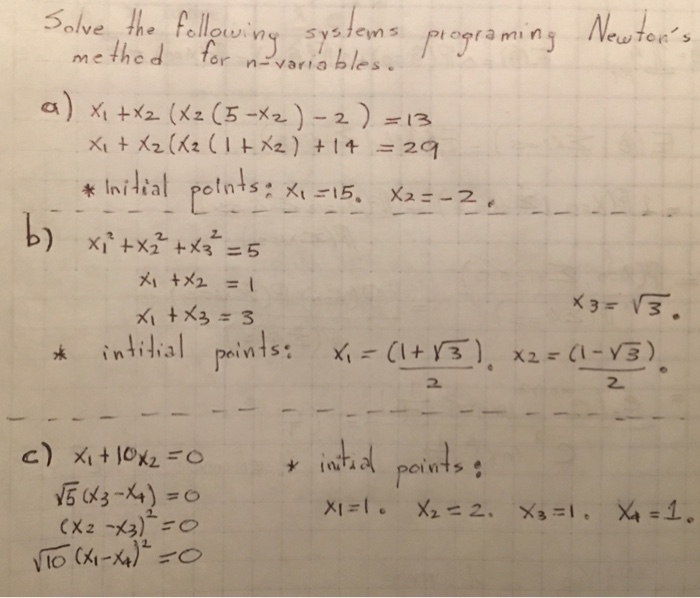 Solve the following systems programing Newton's
method for n-variables.
a) x₁ + x₂ (x₂ (5 - x₂) - 2) = 13
x₁ + x₂ (x₂ (1 + x₂) + 14 = 29
* Initial points: x₁ = 15. x₂ = -2.
b) x₁² + x₂² + x₃² = 5
x₁ + x₂ = 1
x₁ + x₃ = 3
x₃ = √3.
* intitial points: x₁ = (1+√3)/2. x₂ = (1-√3)/2.
c) x₁ + 10x₂ = 0
√5 (x₃ - x₄) = 0
(x₂ - x₃)² = 0
√10 (x₁ - x₄)² = 0
* initial points:
x₁ = 1. x₂ = 2. x₃ = 1. x₄ = 1.